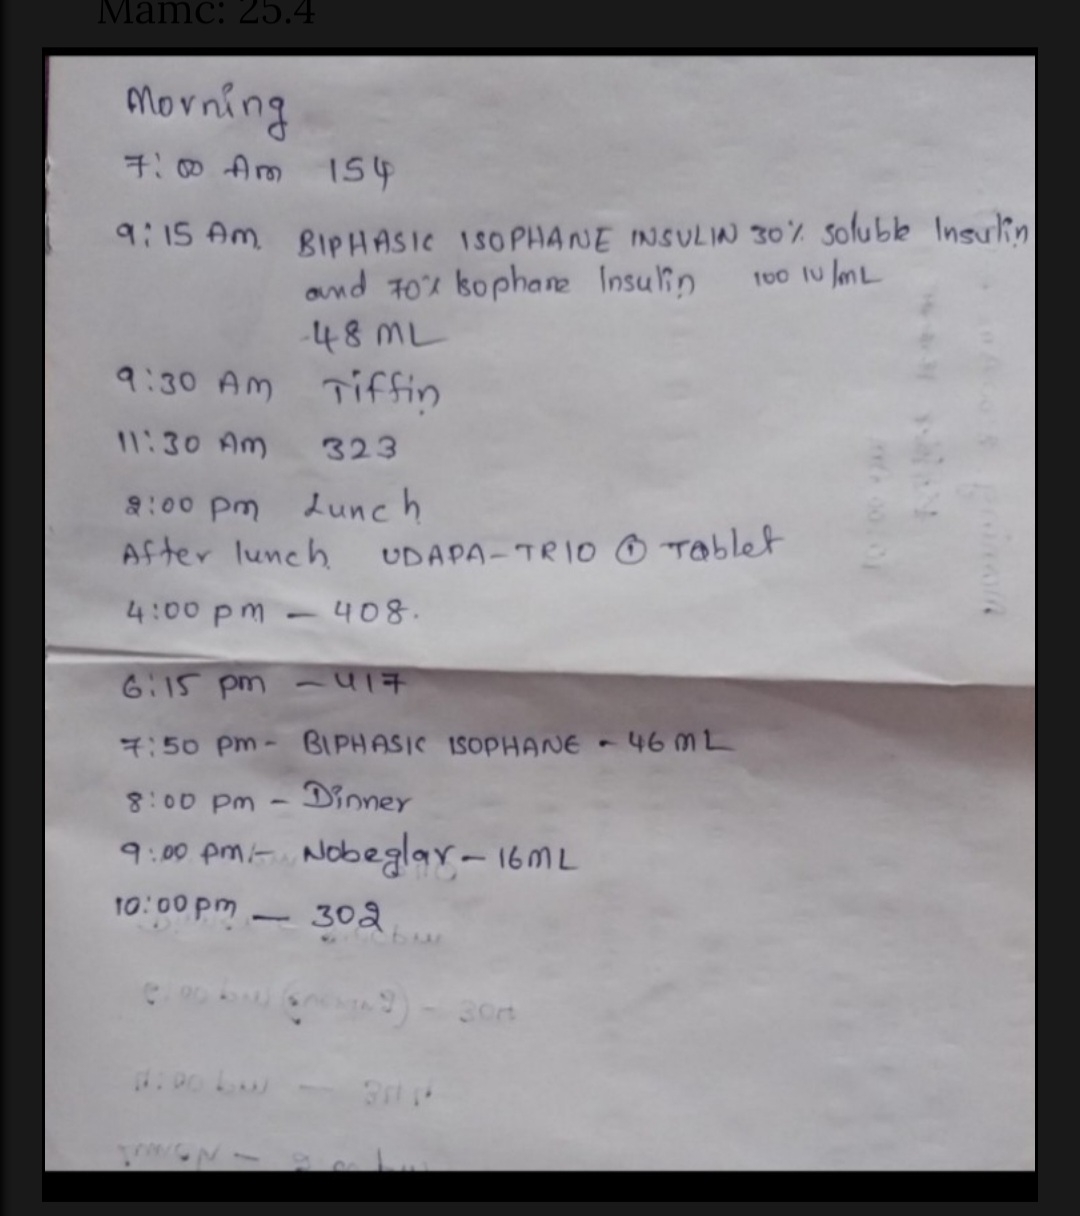 Mamc: 25.4
Morning
7:00 Am 154
9:15 Am BIPHASIC ISOPHANE INSULIN 30% soluble Insulin
and 70% Isophane Insulin 100 IU/mL
48 ML
9:30 AM Tiffin
11:30 Am 323
2:00 pm Lunch
After lunch UDAPA-TRIO ① Tablet
4:00 pm - 408.
6:15 pm - 417
7:50 pm - BIPHASIC ISOPHANE - 46 mL
8:00 pm - Dinner
9:00 pm:- Nobeglar - 16ML
10:00 pm - 302